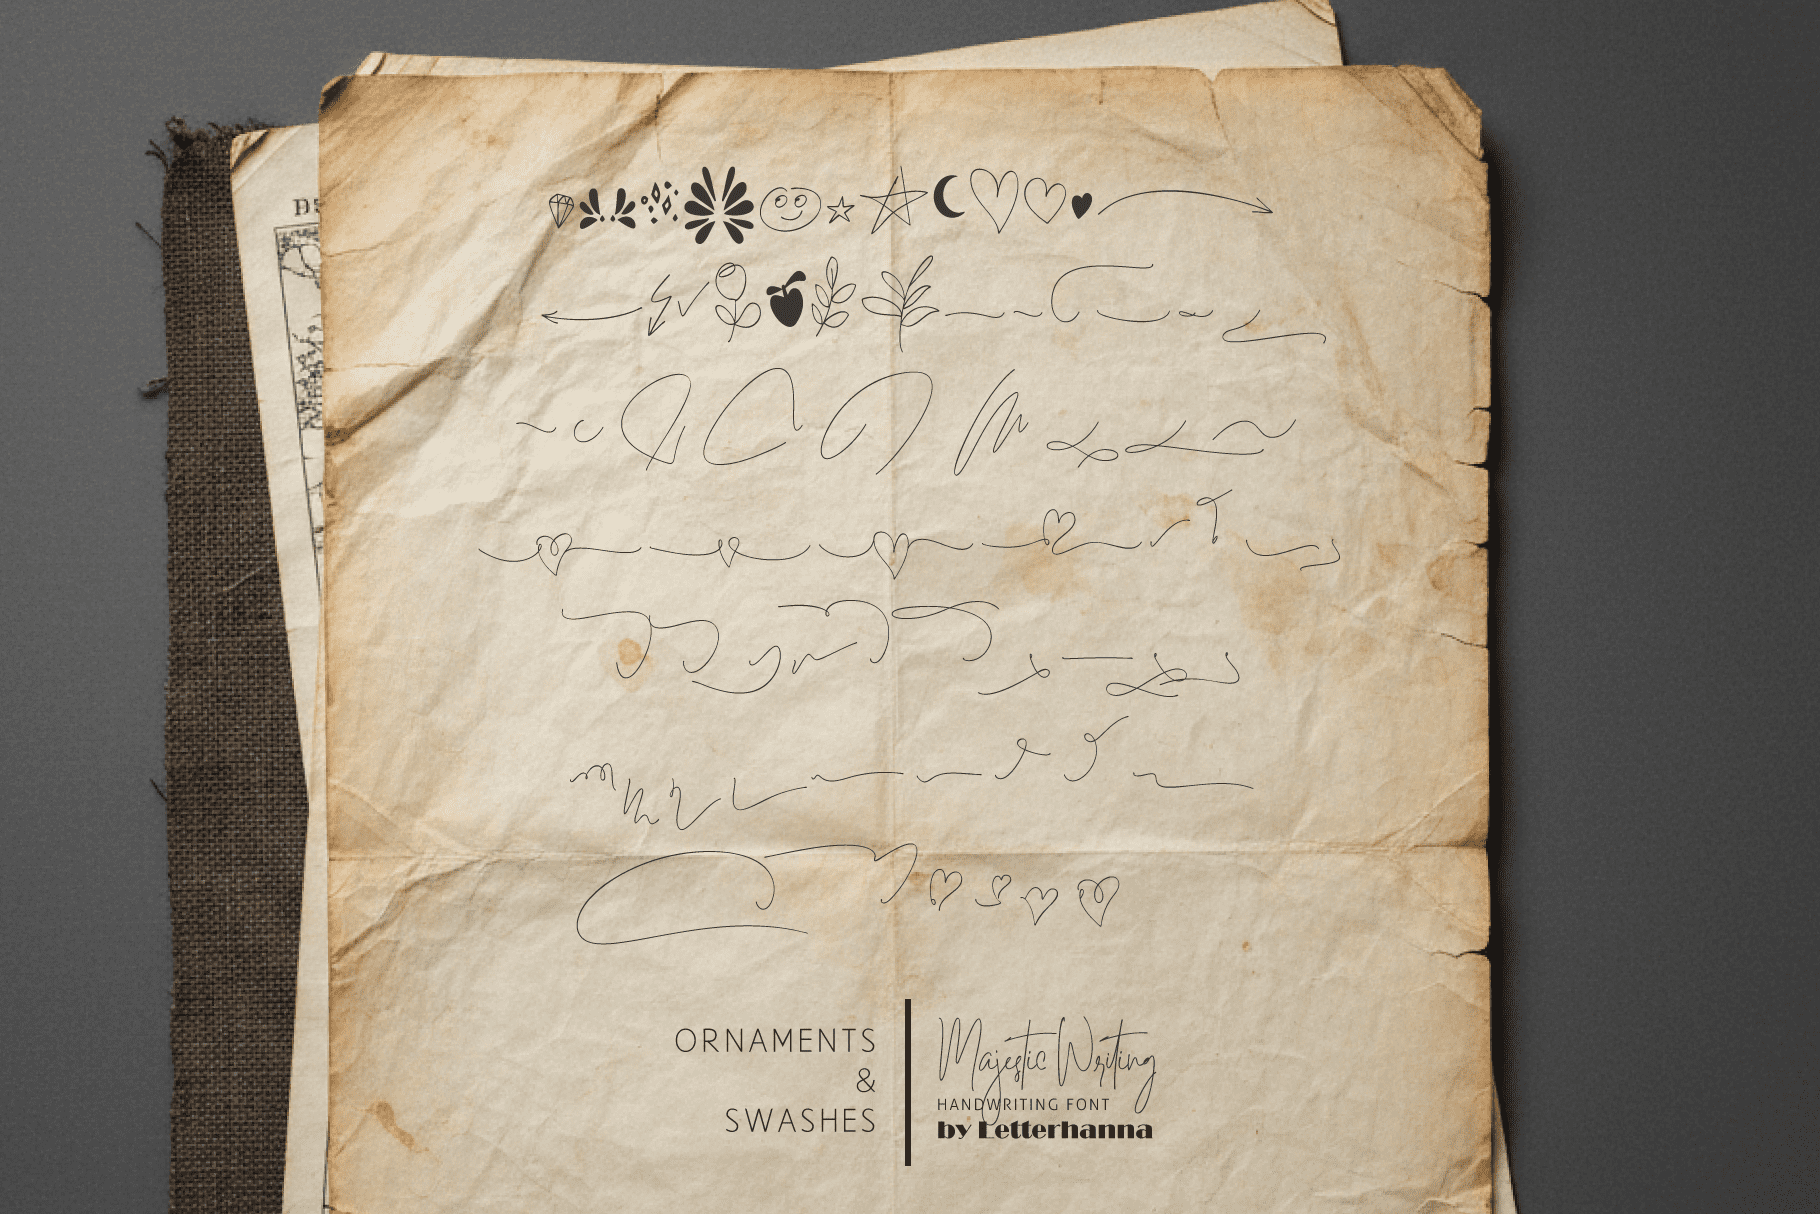 ORNAMENTS
&
SWASHES
Majestic Writing
HANDWRITING FONT
by Letterhanna